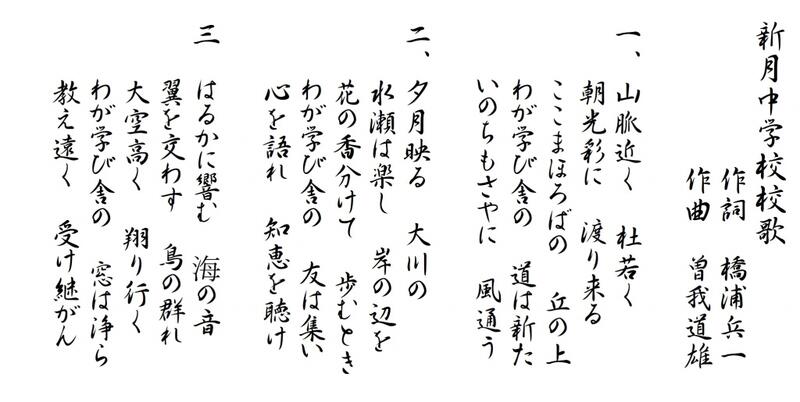 新月中学校校歌
作詞 橋浦兵一
作曲 曽我道雄
一、山脈近く 杜若く
朝光彩に 渡り来る
ここまほろばの 丘の上
わが学び舎の 道は新た
いのちもさやに 風通う
二、夕月映る 大川の
水瀬は楽し 岸の辺を
花の香分けて 歩むとき
わが学び舎の 友は集い
心を語れ 知恵を聴け
三 はるかに響む 海の音
翼を交わす 鳥の群れ
大空高く 翔り行く
わが学び舎の 窓は浄ら
教え遠く 受け継がん